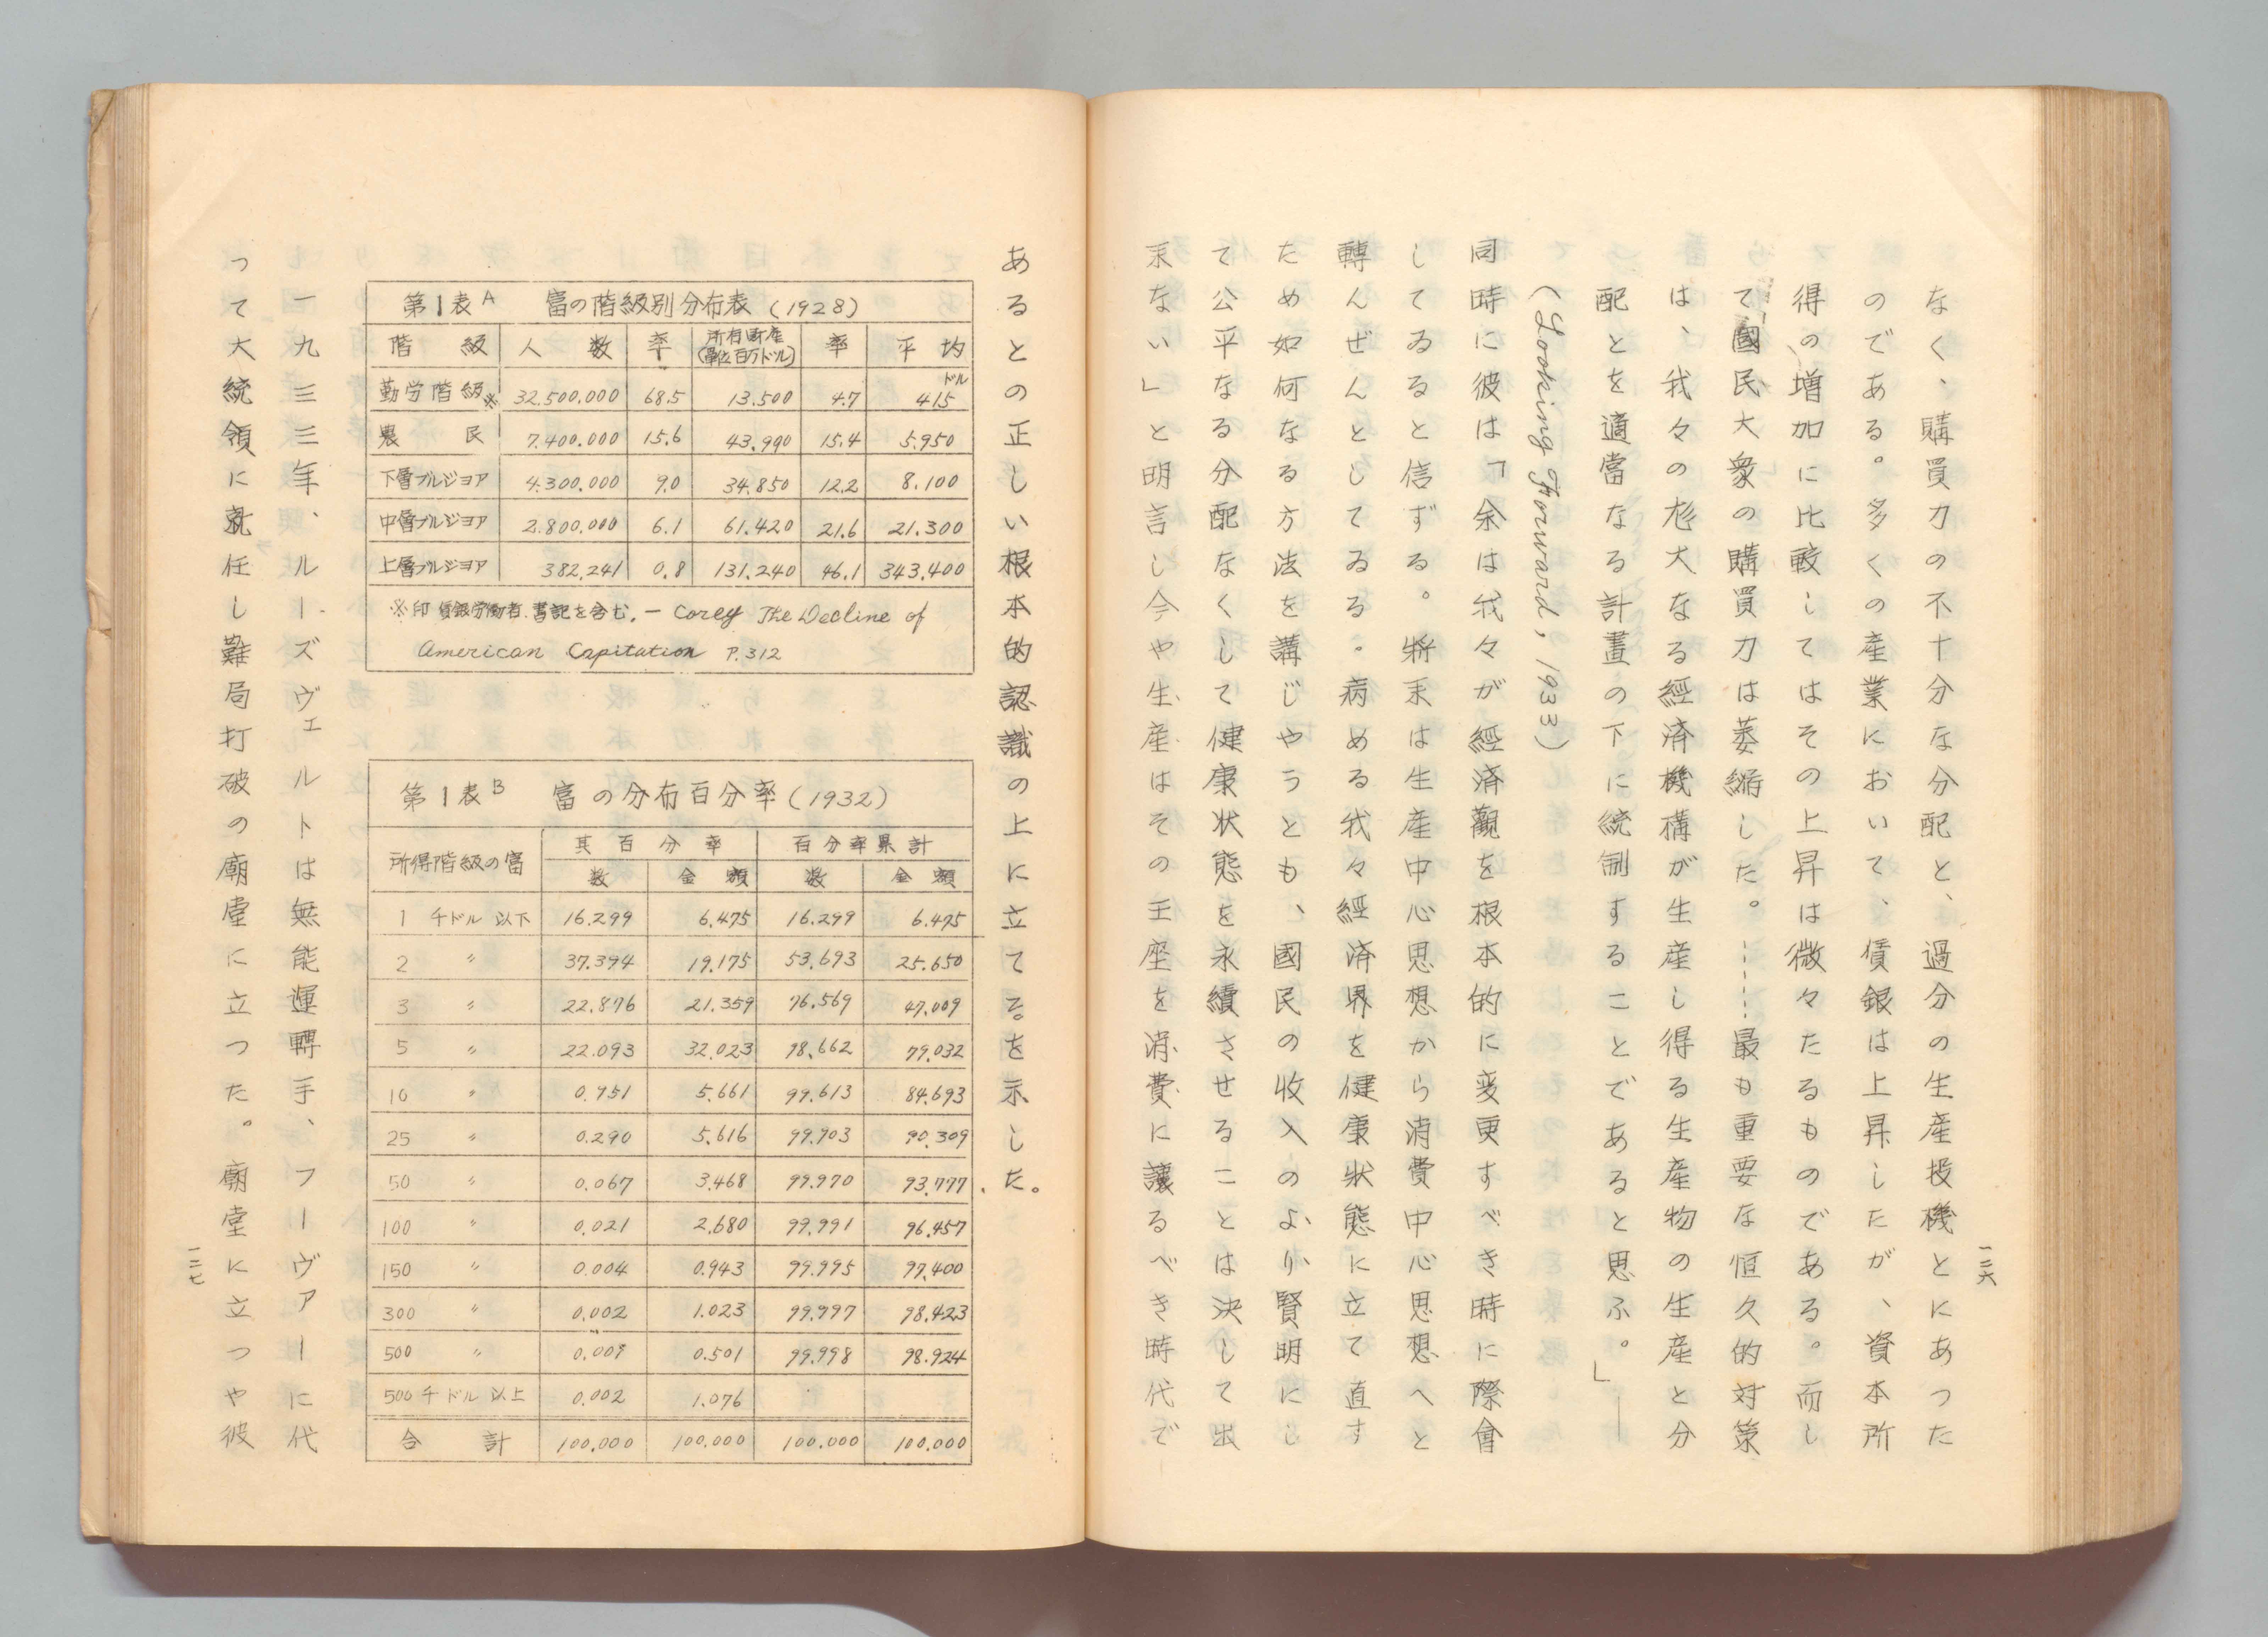 なく、購買力の不十分な分配と、過分の生産投機とにあった
のである。多くの産業において、賃銀は上昇したが、資本所
得の増加に比較してはその上昇は微々たるものである。而し
て國民大衆の購買力は萎縮した。……最も重要な恒久的対策
は、我々の尨大なる經済機構が生産し得る生産物の生産と分
配とを適當なる計畫の下に統制することであると思ふ。」——
(Looking Forward, 1933)
同時に彼は「余は我々が經済觀を根本的に変更すべき時に際會
してゐると信ずる。將来は生産中心思想から消費中心思想へと
轉んぜんとしてゐる。病める我々經済界を健康狀態に立て直す
ため如何なる方法を講じやうとも、國民の收入のより賢明にし
て公平なる分配なくして健康状態を永續させることは決して出
来ない」と明言し今や生産はその王座を消費に讓るべき時代で
一二六
あるとの正しい根本的認識の上に立てるを示した。
第1表A 富の階級別分布表(1928)
階級 人数 率 所有財産(單位百万ドル) 率 平均
勤労階級※ 32.500.000 68.5 13.500 4.7 ドル415
農民 7.400.000 15.6 43.990 15.4 5.950
下層ブルジヨア 4.300.000 9.0 34.850 12.2 8.100
中層ブルジヨア 2.800.000 6.1 61.420 21.6 21.300
上層ブルジヨア 382.241 0.8 131.240 46.1 343.400
※印 賃銀労働者.書記を含む. — Corey The Decline of
American Capitation P.312
第1表B 富の分布百分率(1932)
所得階級の富 其百分率 百分率累計
数 金額 数 金額
1 千ドル 以下 16.299 6.475 16.299 6.475
2 〃 37.394 19.175 53.693 25.650
3 〃 22.876 21.359 76.569 47.009
5 〃 22.093 32.023 98.662 79.032
10 〃 0.951 5.661 99.613 84.693
25 〃 0.290 5.616 99.903 90.309
50 〃 0.067 3.468 99.970 93.777
100 〃 0.021 2.680 99.991 96.457
150 〃 0.004 0.943 99.995 97.400
300 〃 0.002 1.023 99.997 98.423
500 〃 0.009 0.501 99.998 98.924
500千ドル以上 0.002 1.076
合計 100.000 100.000 100.000 100.000
一九三三年、ルーズヴェルトは無能運轉手、フーヴァーに代
って大統領に就任し難局打破の廟堂に立つた。廟堂に立つや彼
一二七